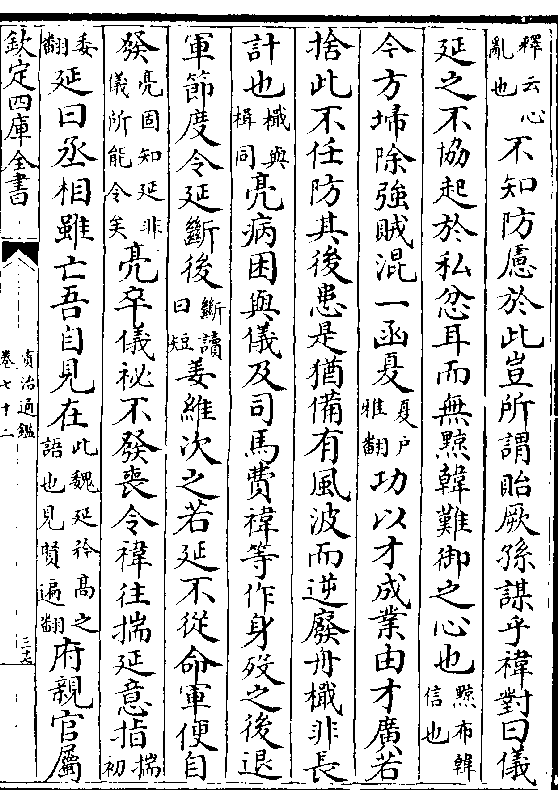 釋云心亂也不知防慮於此豈所謂貽厥孫謀乎禕對曰儀
延之不協起於私忿耳而無黥韓難御之心也黥布韓信也
今方埽除強賊混一函夏夏户雅翻功以才成業由才廣若
捨此不任防其後患是猶備有風波而逆廢舟檝非長
計也檝與楫同亮病困與儀及司馬費禕等作身殁之後退
軍節度令延斷後斷讀曰短姜維次之若延不從命軍便自
發亮固知延非儀所能令矣亮卒儀祕不發喪令禕往揣延意指揣初
委翻延曰丞相雖亡吾自見在此魏延矜高之語也見賢遍翻府親官屬
欽定四庫全書
資治通鑑
卷七十二